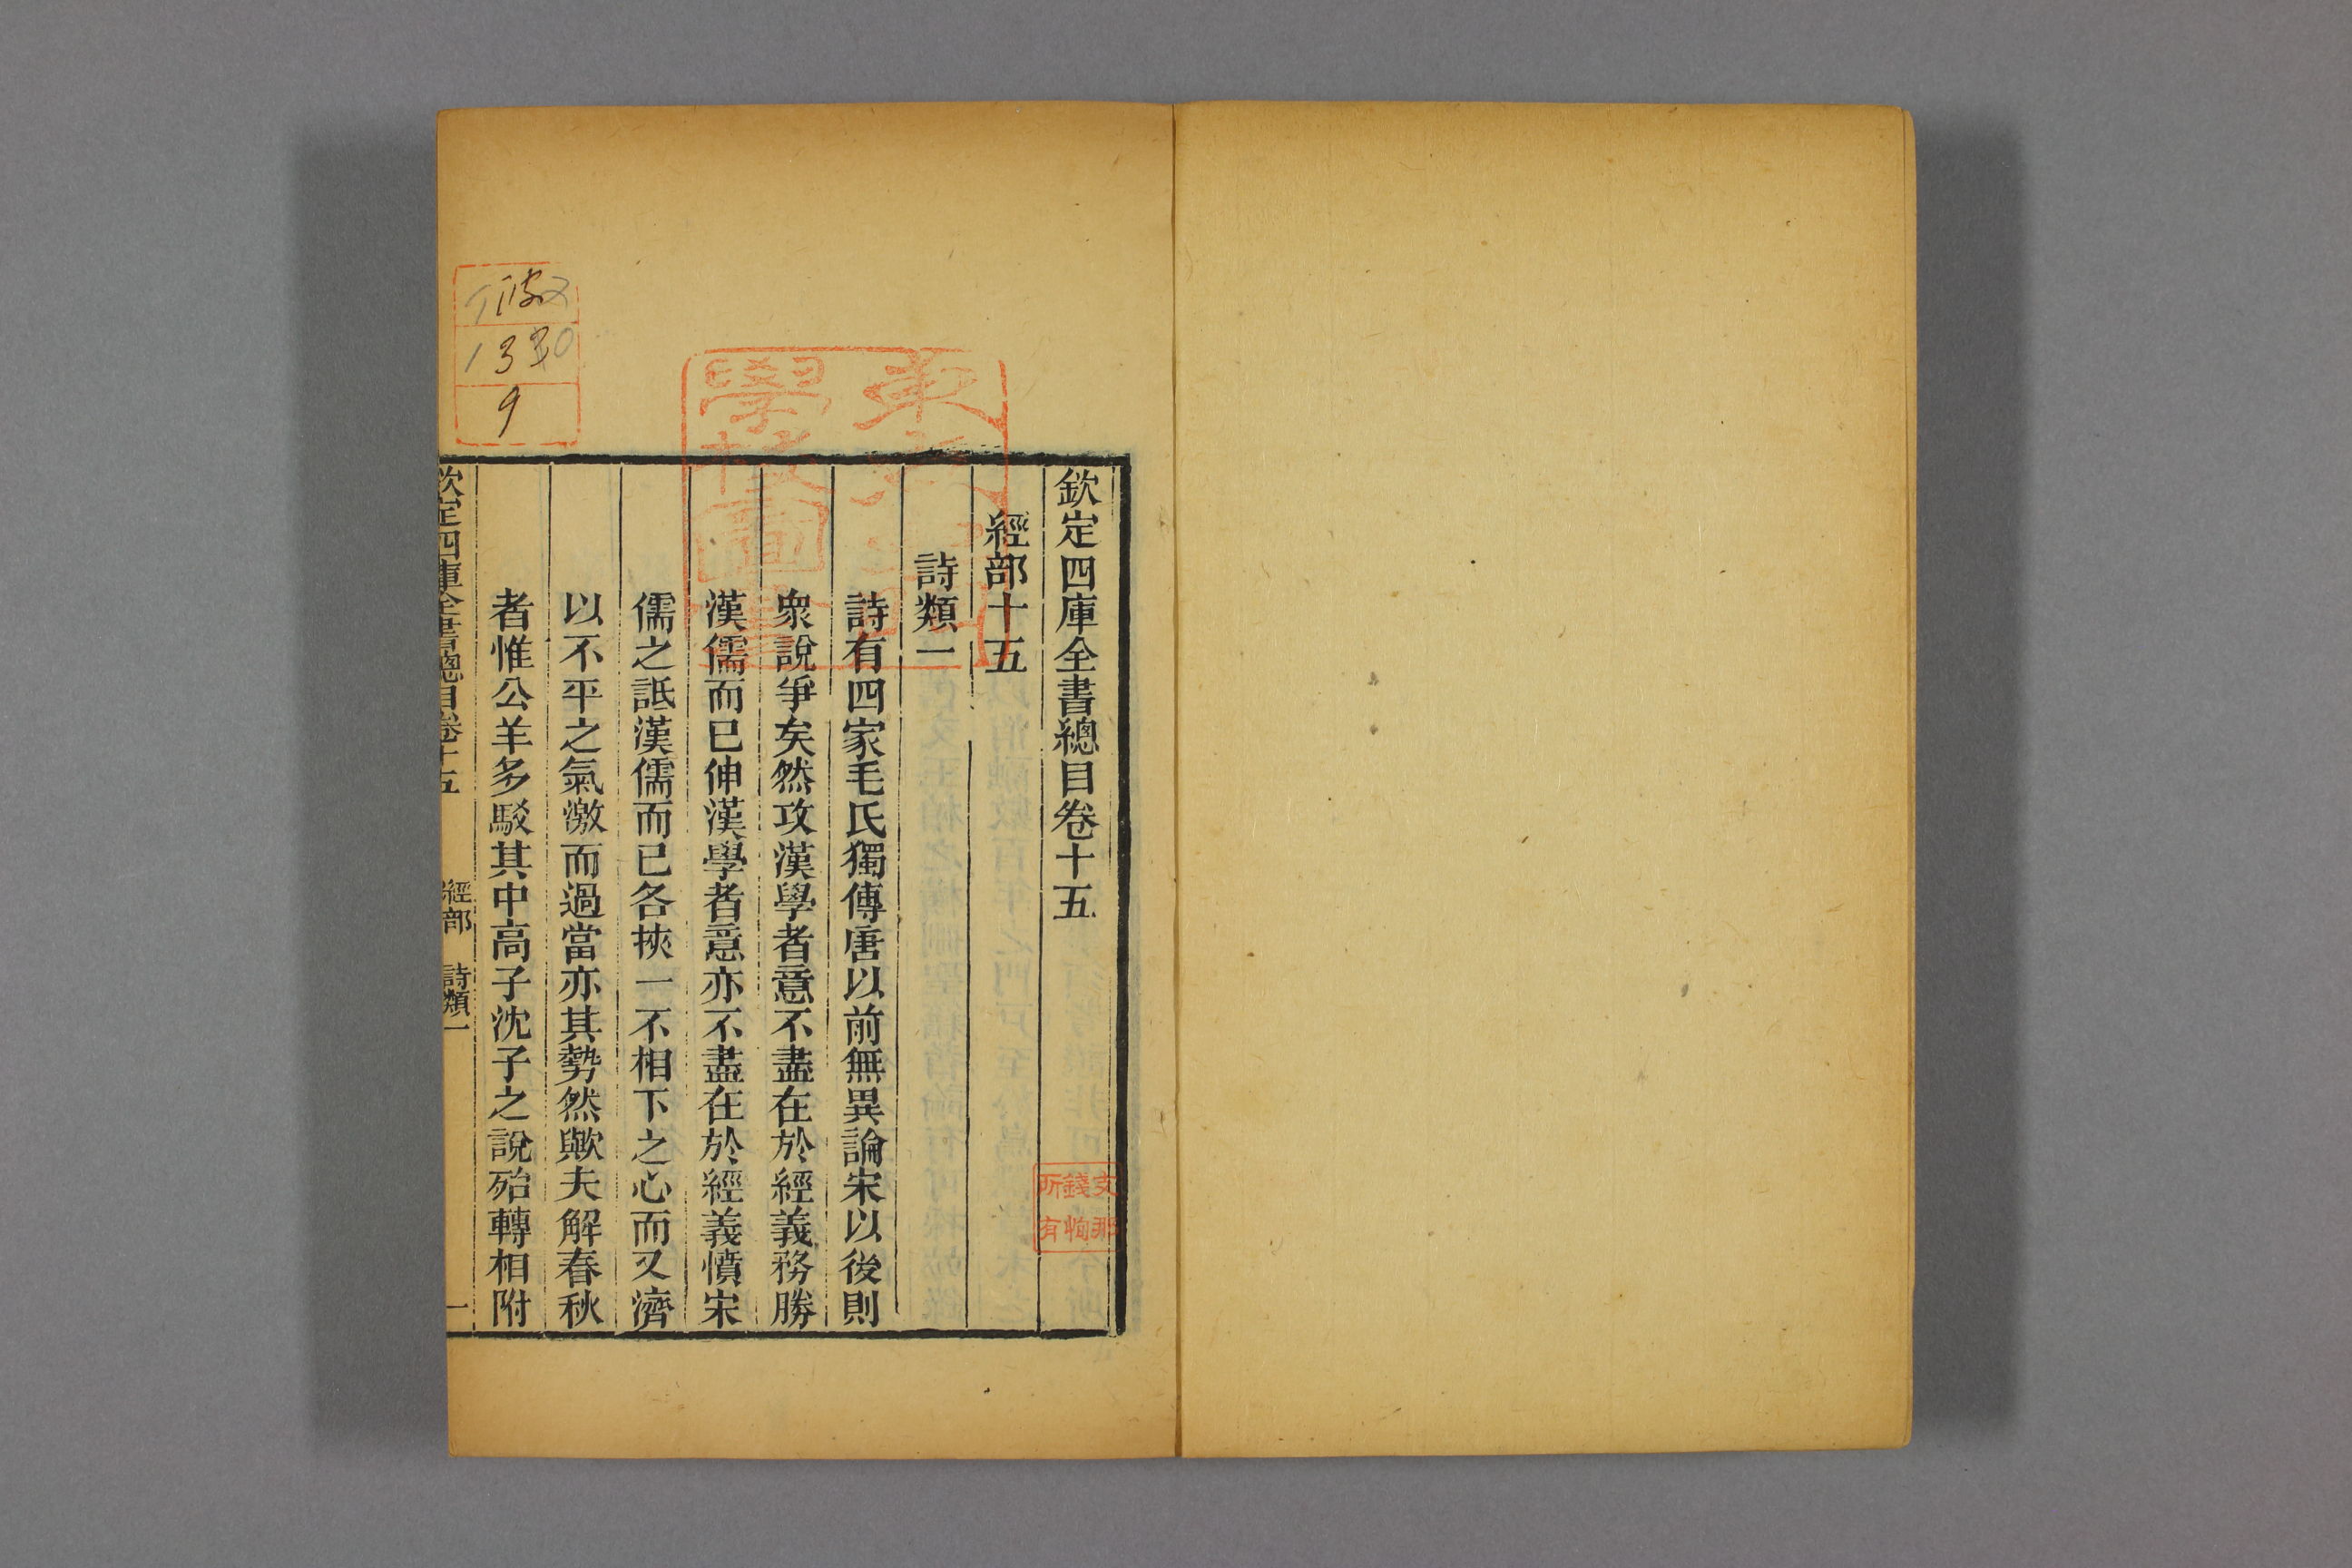 欽定四庫全書總目卷十五
經部十五
詩類一
詩有四家毛氏獨傳唐以前無異論宋以後則
衆說爭矣然攻漢學者意不盡在於經義務勝
漢儒而已伸漢學者意亦不盡在於經義憤宋
儒之詆漢儒而已各挾一不相下之心而又濟
以不平之氣激而過當亦其勢然歟夫解春秋
者惟公羊多駁其中高子沈子之說殆轉相附
欽定四庫全書總目卷十五 經部 詩類一 一
支那
錢恂
所有
1330
9